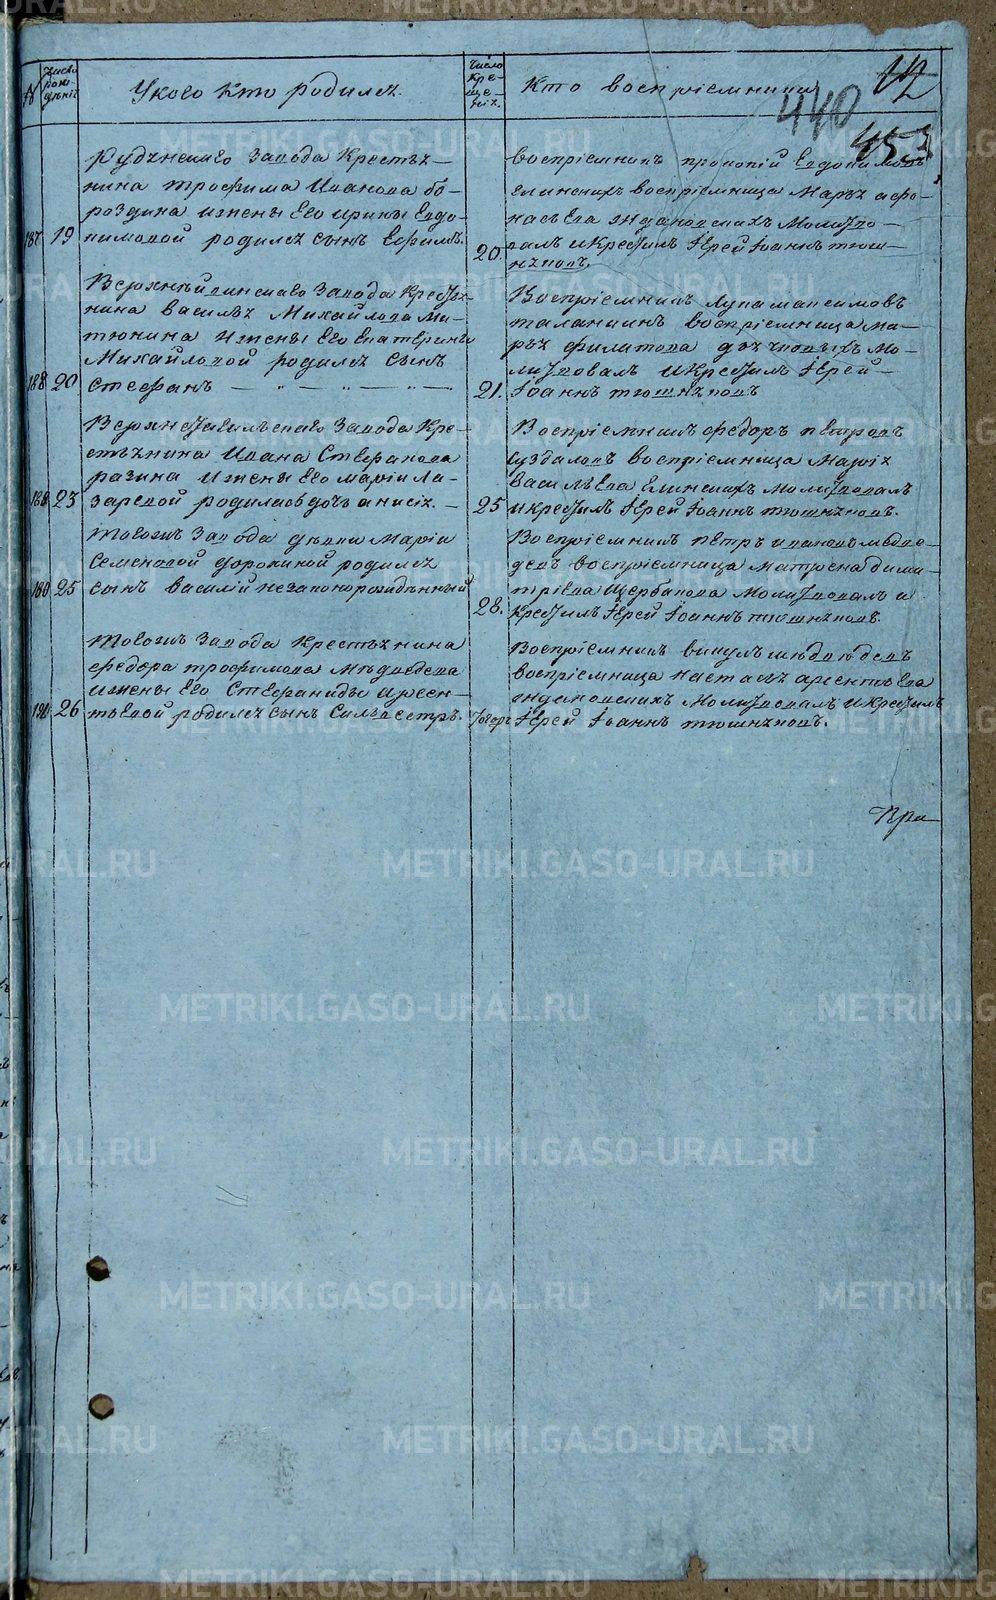 №
Число рож-деній
У кого кто родился.
Число кре-ще-нія.
Кто воспріемники
112
440
453
Руднянскаго Завода Крестья-
нина трофима Иванова бо-
роздина и жены Его ирины Евдо-
187 19 кимовой родился сынъ Ефимъ.
воспріемникъ прокопій Евдокимовъ
Елинскихъ воспріемница Марья афо-
насьева ждановскихъ Молитво-
20. валъ и Крестилъ Іерей Іоаннъ тюш-
няковъ.
Верхнейвинскаго Завода Крестья-
нина Василья Михайлова Ми-
тюнина и жены Его Екатерины
Михайловой родился сынъ
188 20 Стефанъ — " — " — " —
Воспріемникъ Лупа максимовъ
таланкинъ воспріемница Ма-
рья филипова дьячковыхъ Мо-
литвовалъ и Крестилъ Іерей
21. Іоаннъ тюшняковъ
Верхнетавильскаго Завода Кре-
стьянина Ивана Стефанова
разина и жены Его маріи Ла-
188 23 заревой родилась дочь анисія. —
Воспріемникъ федоръ петровъ
суздаловъ воспріемница Марія
Васильева Елинскихъ Молитвовалъ
25 и крестилъ Іерей Іоаннъ тюшняковъ.
Тогожъ Завода дѣвки Маріи
Семеновой родился
180 25 сынъ василій незаконорожденный
Воспріемникъ петръ ивановъ медвѣ-
девъ воспріемница матрена дими-
тріева Щербакова Молитвовалъ и
28. Крестилъ Іерей Іоаннъ тюшняковъ.
Тогожъ Завода Крестьянина
федора трофимова Мѣдведева
и жены Его Стефаниды Арсен-
190 26 тьевой родился сынъ Сильвестръ.
Воспріемникъ викулъ мѣдвѣдевъ
воспріемница настасья арсентьева
ждановскихъ Молитвовалъ и Крестилъ
Іерей Іоаннъ тюшняковъ.
При
METRIKI.GASO-URAL.RU